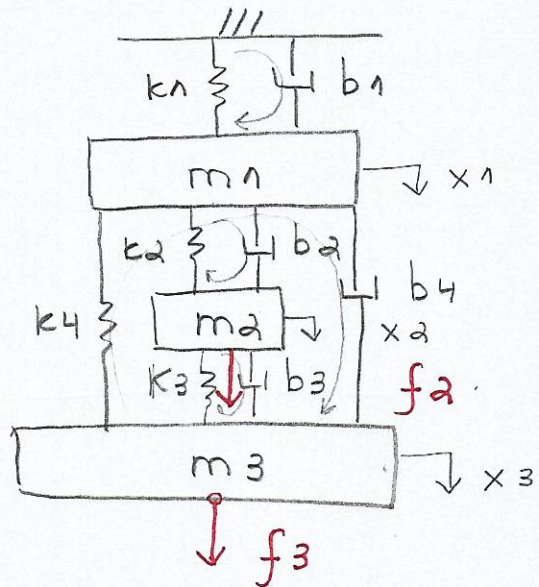 k1 b1
m1 x1
k2 b2
k4 m2 b4
x2
k3 b3 f2
m3 x3
f3